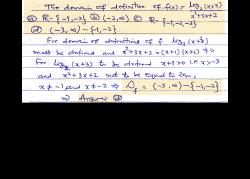 The domain of definition of f(x) = log₂(x+3) / x²+3x+2
ⓐ R-{-1,-2} ⓑ (-2,∞) ⓒ R-{-1,-2,-3}
ⓓ (-3,∞)-{-1,-2}
For domain of definitions of f log₂(x+3)
must be defined and x²+3x+2=(x+1)(x+2)≠0
For log₂(x+3) to be defined x+3>0 i.e x>-3
and x²+3x+2 not to be equal to zero,
x≠-1 and x≠-2 ⇒ D_f = (-3,∞)-{-1,-2}
⇒ Answer ⓓ